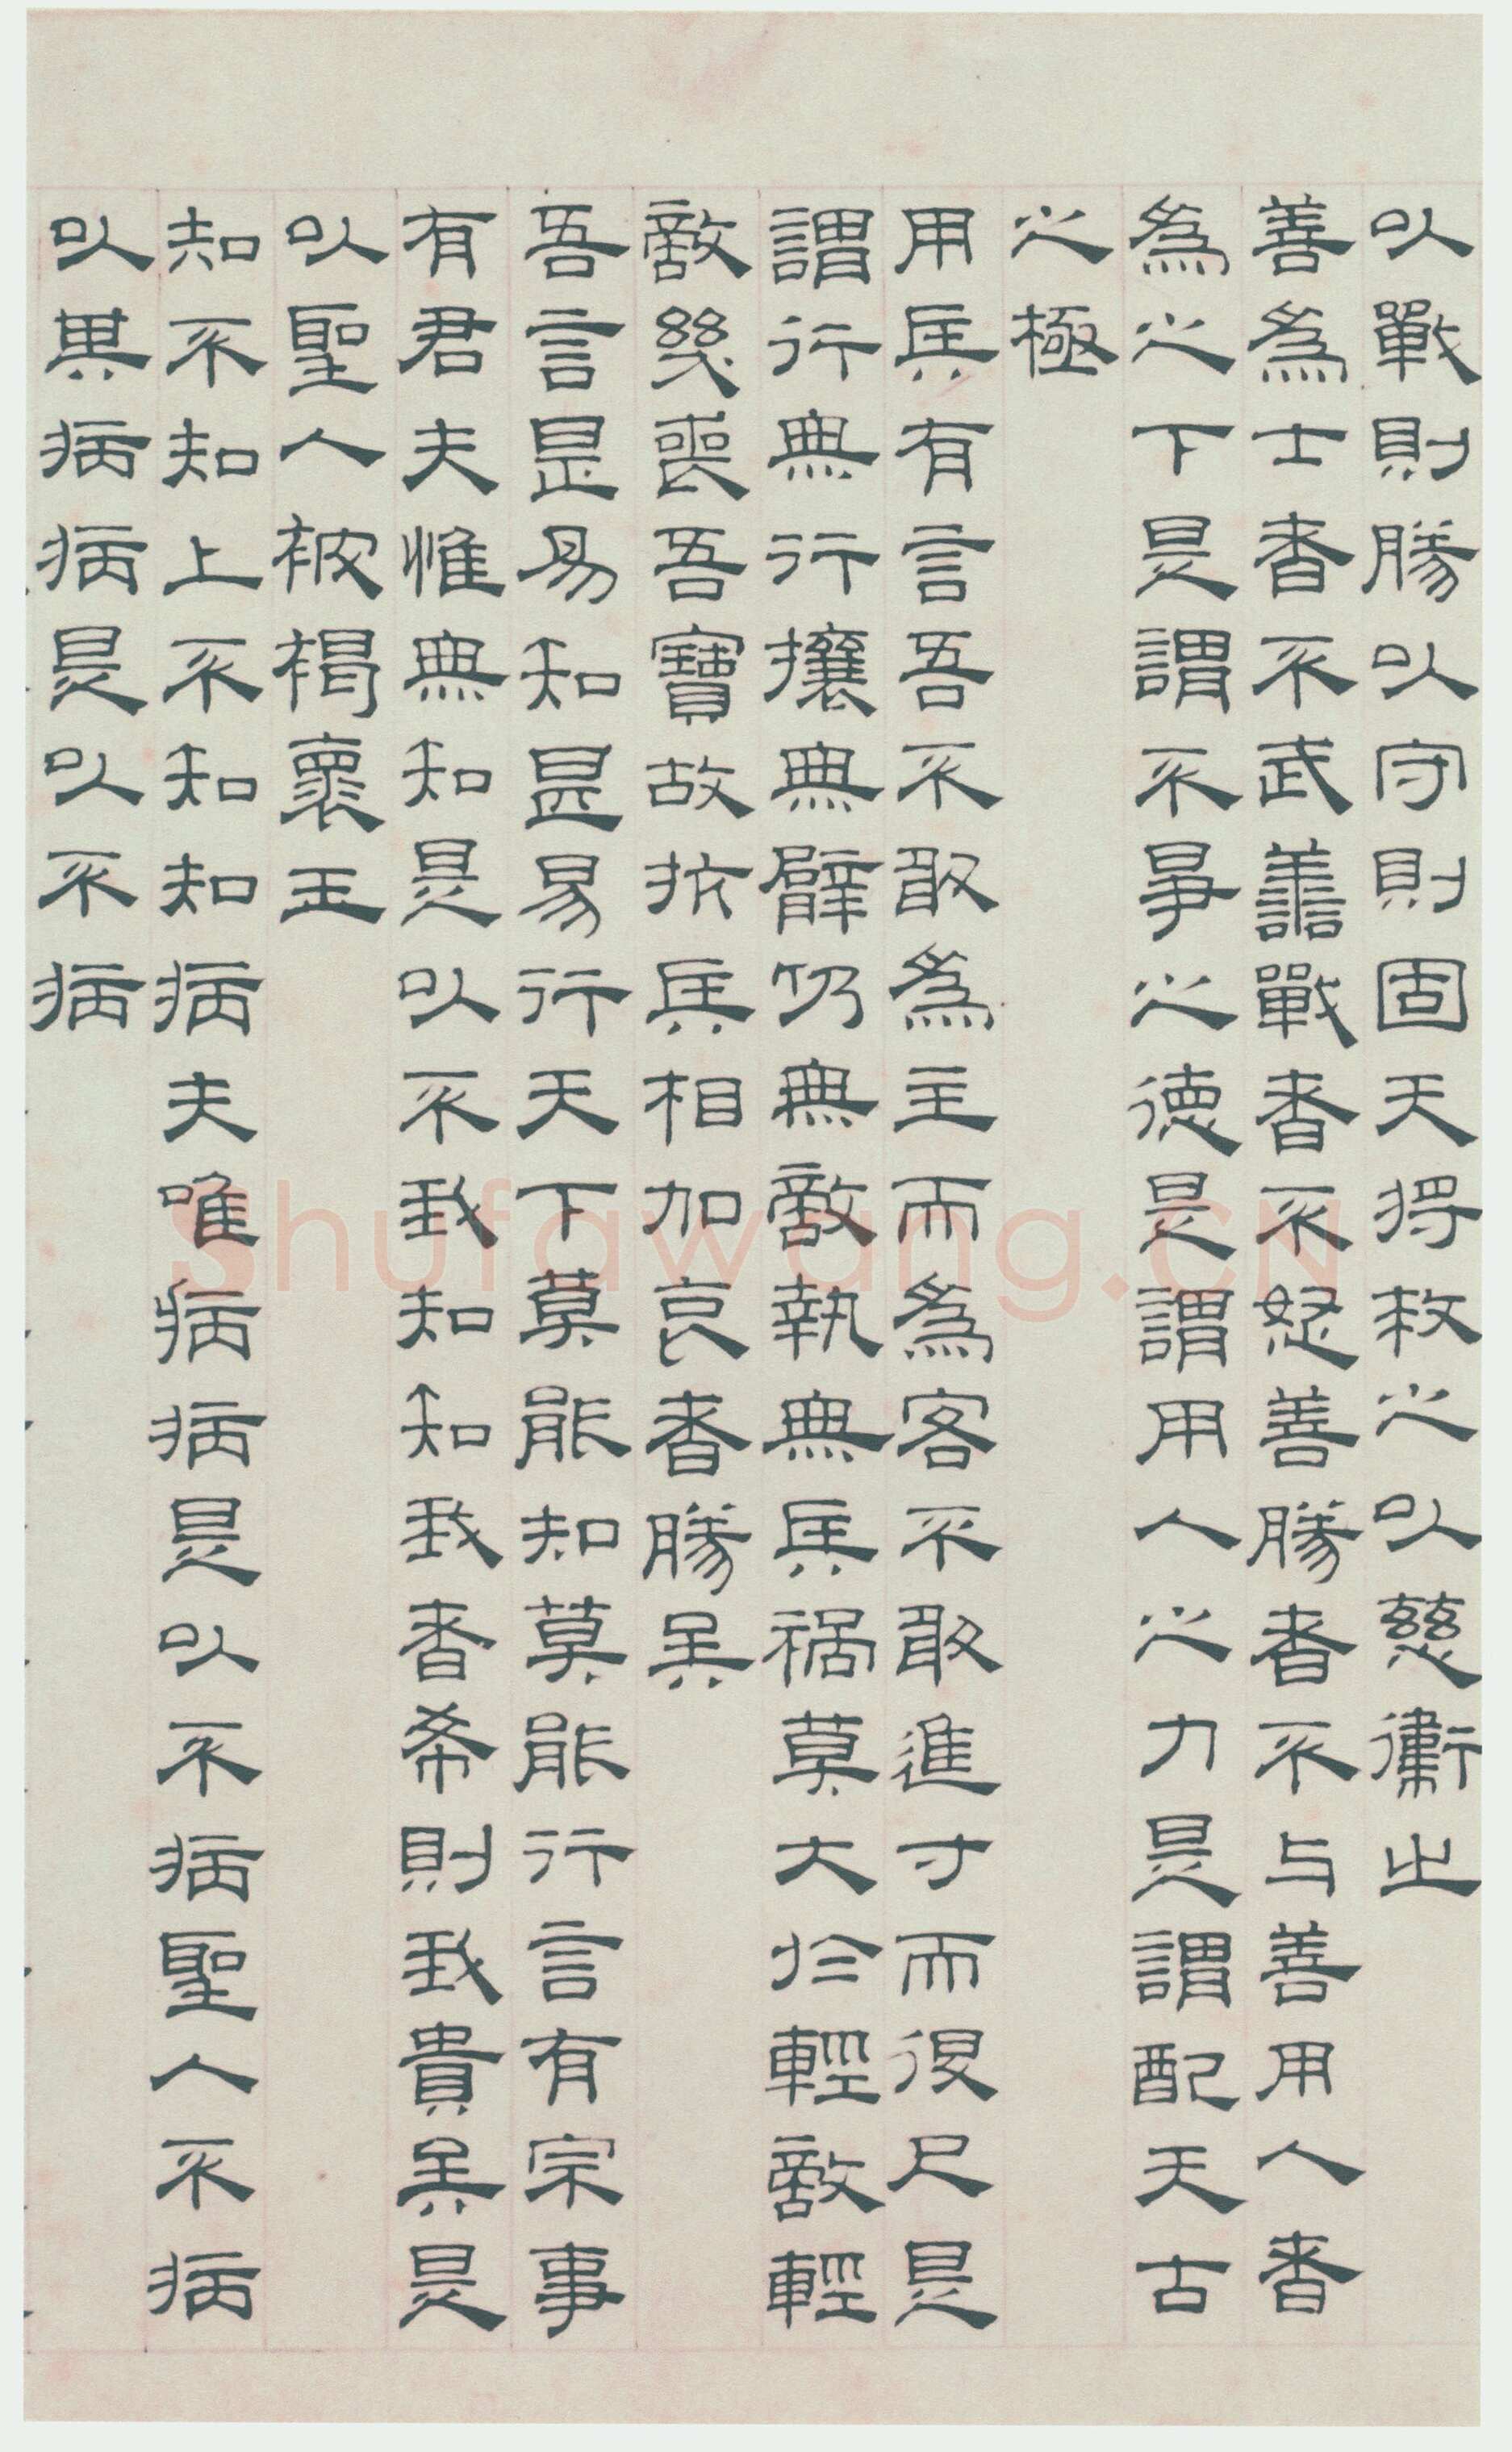 以戰則勝以守則固天将救之以慈衛之
善為士者不武譱戰者不怒善勝者不与善用人者
為之下是謂不爭之德是謂用人之力是謂配天古
之極
用兵有言吾不敢為主而為客不敢進寸而後尺是
謂行無行攘無臂仍無敵執無兵禍莫大於輕敵輕
敵幾喪吾寶故抗兵相加哀者勝矣
吾言甚易知甚易行天下莫能知莫能行言有宗事
有君夫惟無知是以不我知知我者希則我貴矣是
以聖人被褐褱玉
知不知上不知知病夫唯病病是以不病聖人不病
以其病病是以不病
shufawang.CN